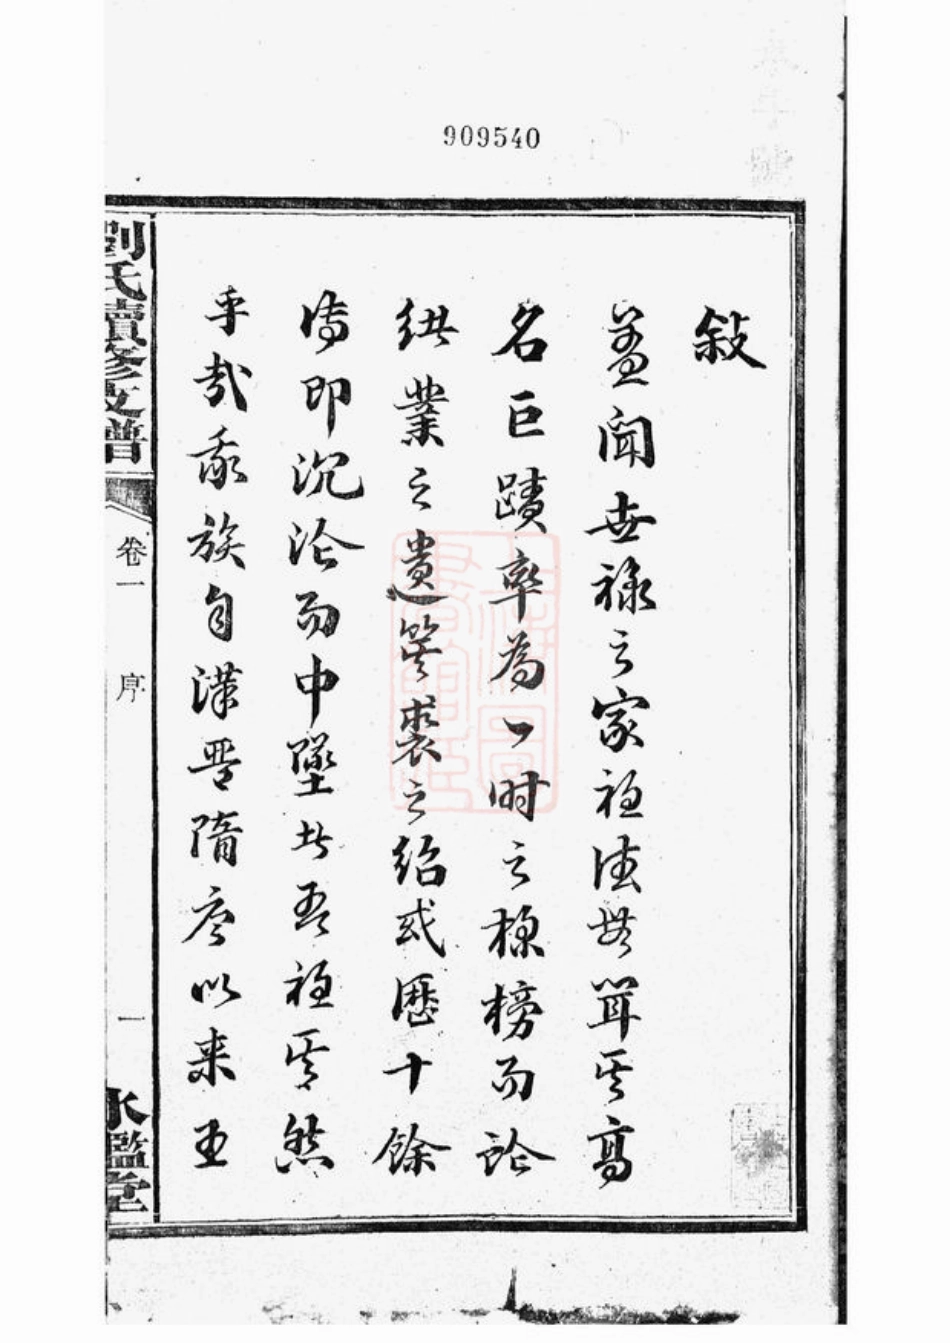 909540
敍
蓋聞世祿之家祖德嵩其高
名巨蹟率為一時之標榜而論
紹業之遺箕裘之紹或歷十餘
傳即沉淪而中墜此吾祖其然
乎哉我族自漢晉隋唐以來王
劉氏續修支譜
卷一
序
一
水鑑堂